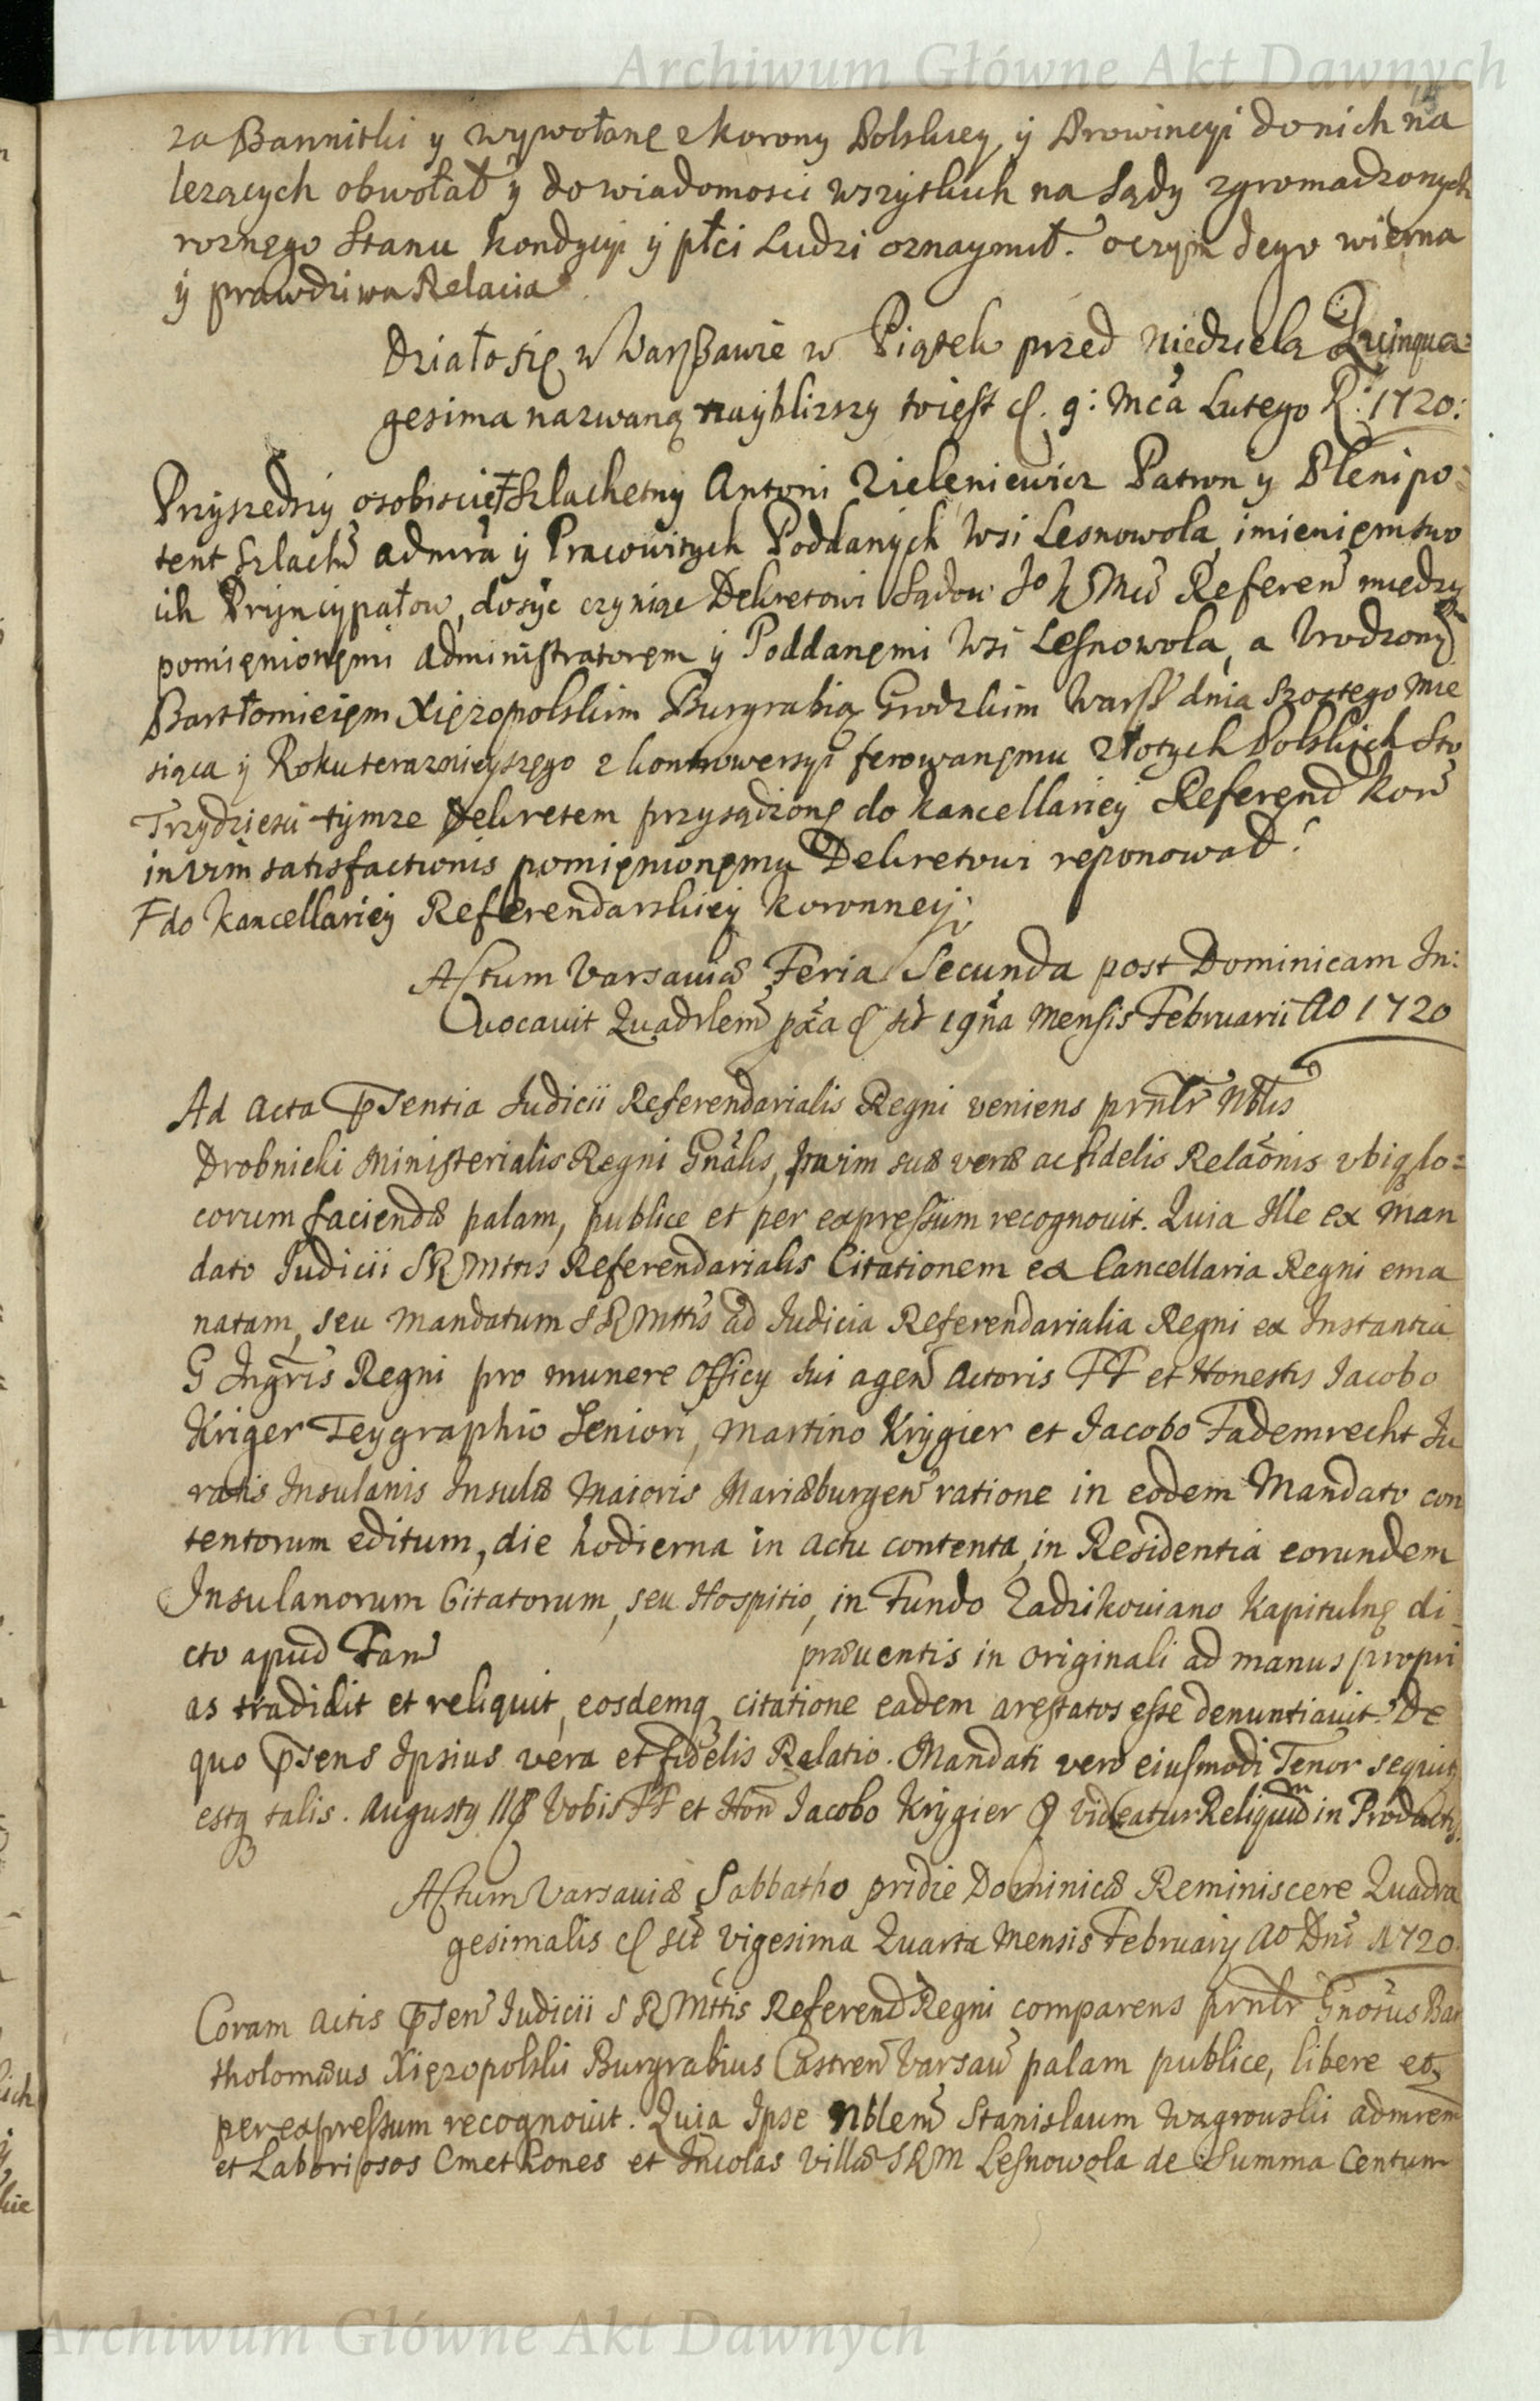 Archiwum Główne Akt Dawnych
za Bannitki y wywołanę z Korony Polskiey y Prowincyi do nich na
lezących obwołał y do wiadomosci wszytkich na Sądy zgromadzonych
roznęgo Stanu Kondycyi y płci Ludzi oznaymił. o czym Jego wierna
y prawdziwa Relacia
Działo się w Warszawie w Piątek przed Niedzielą Quinqua:
gesima nazwaną nayblizszy to iest d. 9: Mca Lutego R: 1720:
Przyszedszy osobiscie Szlachetny Antoni Zieleniewicz Patron y Plenipo:
tent Szlach admra y Pracowitych Poddanych Wsi Lesnowola, imienięm two
ich Pryncypałow, dosyc czyniąc Dekretowi Sądow Jo K Mci Referen między
pomięnionęmi administratoręm y Poddanęmi Wsi Lesnowola, a Urodzonym
Bartłomieięm Xięzopolskim Burgrabią Grodzkim Warss dnia Szostego Mie
siąca y Roku terazniejszęgo z kontrowersyi ferowanęmu złotych Polskich Sto
Trzydziesci tymze Dekretem przysądzonę do Kancellariey Referend Kor
in vim satisfactionis pomięnionęmu Dekretowi reponował.
F do Kancellariey Referendarskiey Koronney;
Actum Varsaviæ Feria Secunda post Dominicam In:
vocavit Quadrlem pxa d sct 19na Mensis Februarii Ao 1720
Ad Acta Psentia Judicii Referendarialis Regni veniens prnlr Nblis
Drobnicki Ministerialis Regni Gnalis, in vim suæ veræ ac fidelis Relaonis ubiq lo:
corum faciendæ palam, publice et per expressum recognovit. Quia Ille ex Man
dato Judicii SRMttis Referendarialis Citationem ex Cancellaria Regni ema
natam, seu Mandatum SRMttis ad Judicia Referendarialia Regni ex Instantia
G Ingris Regni pro munere Officy sui agen Actoris FF et Honestis Jacobo
Kriger Teygraphio Seniori, Martino Krygier et Jacobo Fademrecht Ju
ratis Insulanis Insulæ Maioris Mariæburgen ratione in eodem Mandato con
tentorum editum, die hodierna in actu contenta, in Residentia eorundem
Insulanorum Citatorum, seu Hospitio, in Fundo Zadzikoviano Kapitulnę di
cto apud Fam præventis in originali ad manus propri
as tradidit et reliquit, eosdemq citatione eadem arestatos esse denuntiavit. De
quo Psens Ipsius vera et fidelis Relatio. Mandati vero eiusmodi Tenor sequit
estq talis. Augusty II8 Vobis FF et Hon Jacobo Krygier & Videatur Reliquum in Productis.
Actum Varsaviæ Sabbatho pridie Dominicæ Reminiscere Quadra
gesimalis d sct vigesima Quarta Mensis Februarij Ao Dni 1720.
Coram Actis Psen Judicii SRMttis Referend Regni comparens prnlr Gnosus Bar
tholomæus Xięzopolski Burgrabius Castren Varsav palam publice, libere et
per expressum recognovit. Quia Ipse Nblem Stanislaum Wagrowski admrem
et Laboriosos Cmethones et Incolas Villæ SRM Lesnowola de Summa Centum
Archiwum Główne Akt Dawnych